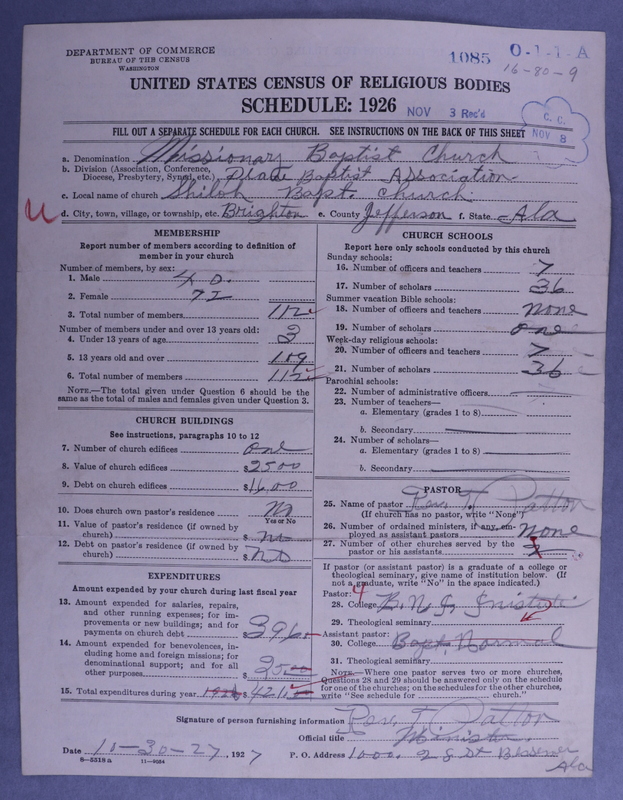 DEPARTMENT OF COMMERCE
BUREAU OF THE CENSUS
WASHINGTON
1085 O-1-1-A
16-80-9
UNITED STATES CENSUS OF RELIGIOUS BODIES
SCHEDULE: 1926
NOV 3 Rec'd
C. C.
NOV 8
FILL OUT A SEPARATE SCHEDULE FOR EACH CHURCH. SEE INSTRUCTIONS ON THE BACK OF THIS SHEET
a. Denomination Missionary Baptist Church
b. Division (Association, Conference, Diocese, Presbytery, Synod, etc.) Baptist Association
c. Local name of church Shiloh Bapt. church
d. City, town, village, or township, etc. Brighton e. County Jefferson f. State Ala
MEMBERSHIP
Report number of members according to definition of member in your church
Number of members, by sex:
1. Male 40.
2. Female 72
3. Total number of members 112
Number of members under and over 13 years old:
4. Under 13 years of age 3
5. 13 years old and over 109
6. Total number of members 112
NOTE.—The total given under Question 6 should be the same as the total of males and females given under Question 3.
CHURCH BUILDINGS
See instructions, paragraphs 10 to 12
7. Number of church edifices one
8. Value of church edifices $2500
9. Debt on church edifices $1600
10. Does church own pastor's residence No
Yes or No
11. Value of pastor's residence (if owned by church) $ no
12. Debt on pastor's residence (if owned by church) $ no
EXPENDITURES
Amount expended by your church during last fiscal year
13. Amount expended for salaries, repairs, and other running expenses; for improvements or new buildings; and for payments on church debt $396
14. Amount expended for benevolences, including home and foreign missions; for denominational support; and for all other purposes $ 35
15. Total expenditures during year 1926 $421
CHURCH SCHOOLS
Report here only schools conducted by this church
Sunday schools:
16. Number of officers and teachers 7
17. Number of scholars 36
Summer vacation Bible schools:
18. Number of officers and teachers none
19. Number of scholars one
Week-day religious schools:
20. Number of officers and teachers 7
21. Number of scholars 36
Parochial schools:
22. Number of administrative officers
23. Number of teachers—
a. Elementary (grades 1 to 8)
b. Secondary
24. Number of scholars—
a. Elementary (grades 1 to 8)
b. Secondary
PASTOR
25. Name of pastor Rev. T. Patton
(If church has no pastor, write "None")
26. Number of ordained ministers, if any, employed as assistant pastors None
27. Number of other churches served by the pastor or his assistants
If pastor (or assistant pastor) is a graduate of a college or theological seminary, give name of institution below. (If not a graduate, write "No" in the space indicated.)
Pastor: 4
28. College B. N.
29. Theological seminary
Assistant pastor:
30. College Bapt Normal
31. Theological seminary
NOTE.—Where one pastor serves two or more churches, Questions 28 and 29 should be answered only on the schedule for one of the churches; on the schedules for the other churches, write "See schedule for church."
Signature of person furnishing information Rev. T. Patton
Official title Minister
Date 10-30-27, 1927 P. O. Address 1000. 2 St Bessemer Ala
8-5518a 11-9034